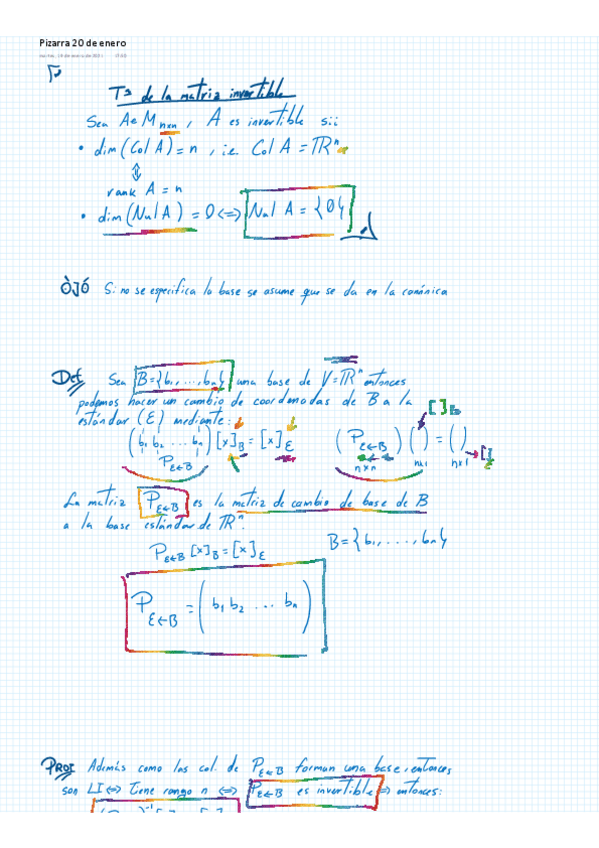 Pizarra 20 de enero
martes, 19 de enero de 2021
Tª de la matriz invertible
Sea A∈M n×n, A es invertible sii:
• dim(Col A) = n, i.e. Col A = ℝⁿ
⇕
rank A = n
• dim(Nul A) = 0 <=> Nul A = {0}
OJO Si no se especifica la base se asume que se da en la canónica
Def Sea B={b₁, ..., bₙ} una base de V=ℝⁿ entonces
podemos hacer un cambio de coordenadas de B a la
estándar (E) mediante:
(b₁ b₂ ... bₙ)[x]_B = [x]_E (P_E←B)( ) = ( ) [ ]_B
P_E←B n×n n×1 n×1
La matriz P_E←B es la matriz de cambio de base de B
a la base estándar de ℝⁿ.
P_E←B [x]_B = [x]_E B={b₁, ..., bₙ}
P_E←B = (b₁ b₂ ... bₙ)
Prop Además como las col. de P_E←B forman una base, entonces
son LI <=> Tiene rango n <=> P_E←B es invertible => entonces: